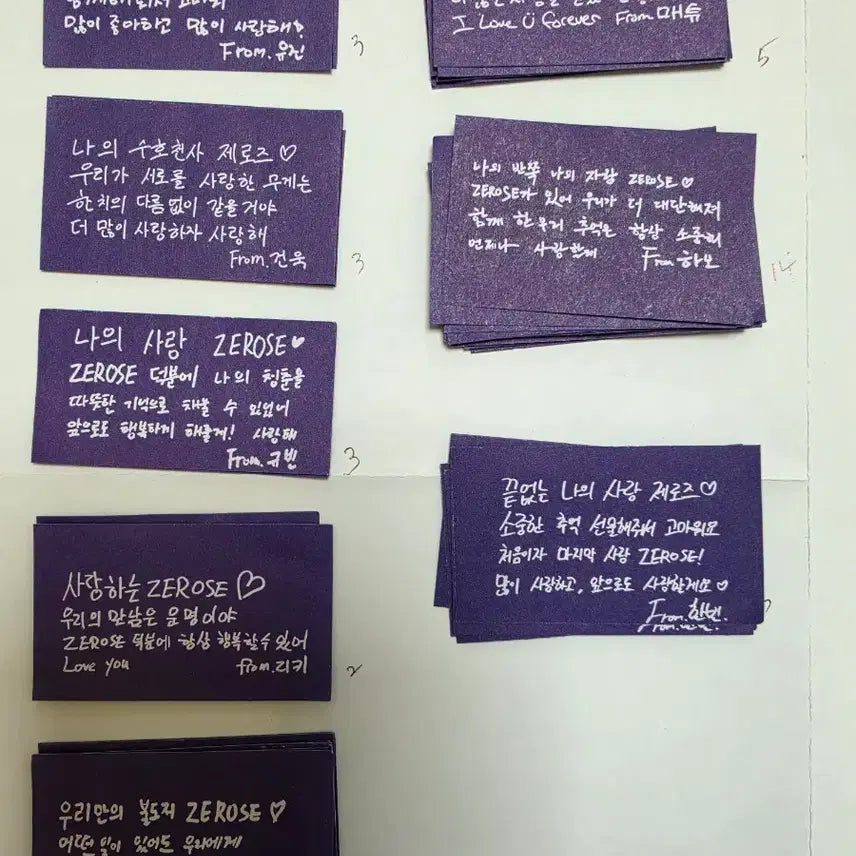 많이 좋아하고 많이 사랑해?
From.유진
3
나의 수호천사 제로즈♡
우리가 서로를 사랑한 무게는
한 치의 다름없이 같을거야
더 많이 사랑하자 사랑해
From.건욱
3
나의 사랑 ZEROSE♥
ZEROSE 덕분에 나의 청춘을
따뜻한 기억으로 채울 수 있었어
앞으로도 행복하게 해줄게! 사랑해
From.규빈
3
사랑하는 ZEROSE♡
우리의 만남은 운명이야
ZEROSE 덕분에 항상 행복할 수 있어
Love you from.리키
2
우리만의 불도저 ZEROSE♡
어떤 일이 있어도 우리에게
I Love U Forever From 매튜
5
나의 반쪽 나의 자랑 ZEROSE♡
ZEROSE가 있어 우리가 더 대단해져
함께 한 우리 추억은 항상 소중히
언제나 사랑할게
From 하오
14
끝없는 나의 사랑 제로즈♡
소중한 추억 선물해줘서 고마워요
처음이자 마지막 사랑 ZEROSE!
많이 사랑하고, 앞으로도 사랑할게요♡
From.한빈